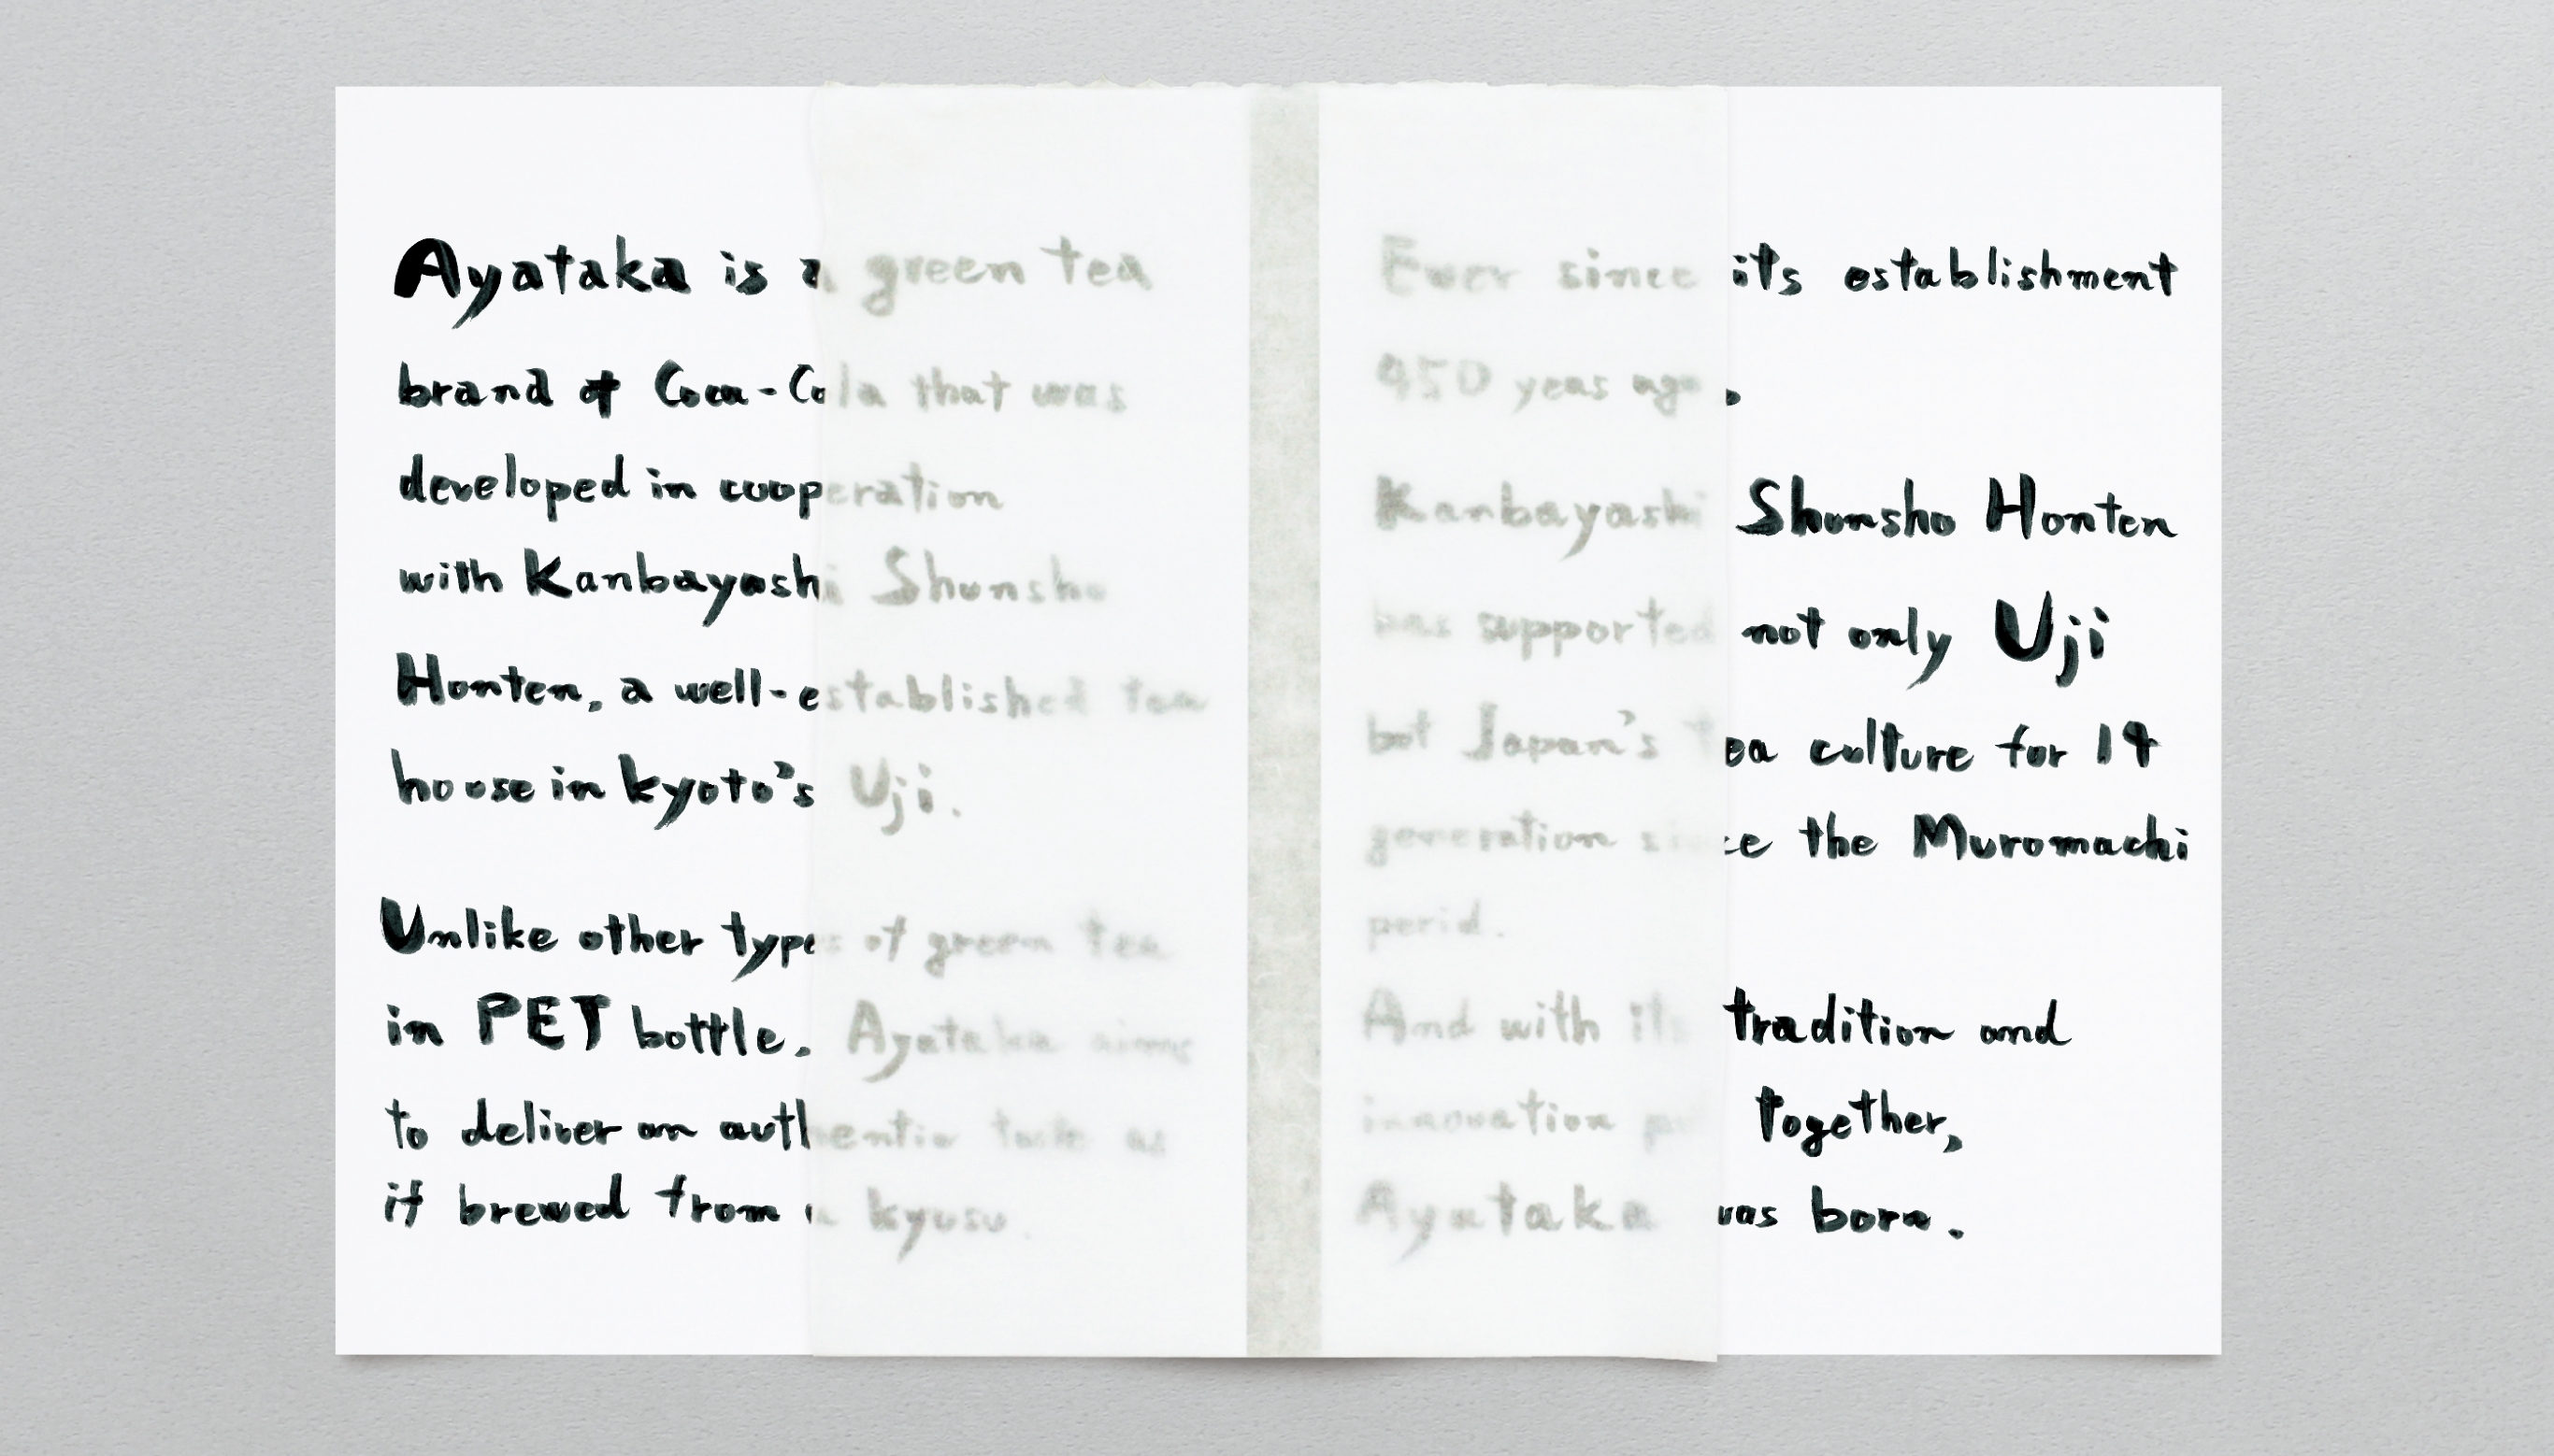 Ayataka is a green tea
brand of Coca-Cola that was
developed in cooperation
with Kanbayashi Shunsho
Honten, a well-established tea
house in kyoto's Uji.
Unlike other types of green tea
in PET bottle, Ayataka aims
to deliver an authentic taste as
if brewed from a kyusu
Ever since its establishment
450 yeas ago,
Kanbayashi Shunsho Honten
has supported not only Uji
but Japan's tea culture for 14
generation since the Muromachi
perid.
And with its tradition and
innovation put together,
Ayataka was born.